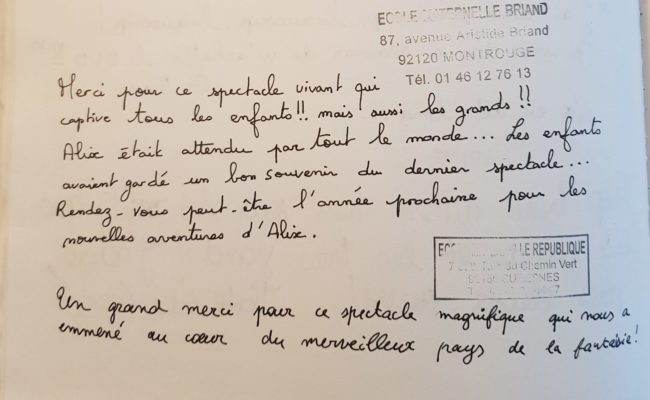 ECOLE MATERNELLE BRIAND
87, avenue Aristide Briand
92120 MONTROUGE
Tél. 01 46 12 76 13
Merci pour ce spectacle vivant qui
captive tous les enfants!! mais aussi les grands!!
Alix était attendu par tout le monde... Les enfants
avaient gardé un bon souvenir du dernier spectacle...
Rendez-vous peut-être l'année prochaine pour les
nouvelles aventures d'Alix.
REPUBLIQUE
du Chemin Vert
Un grand merci pour ce spectacle magnifique qui nous a
emmené au cœur du merveilleux pays de la fantaisie!